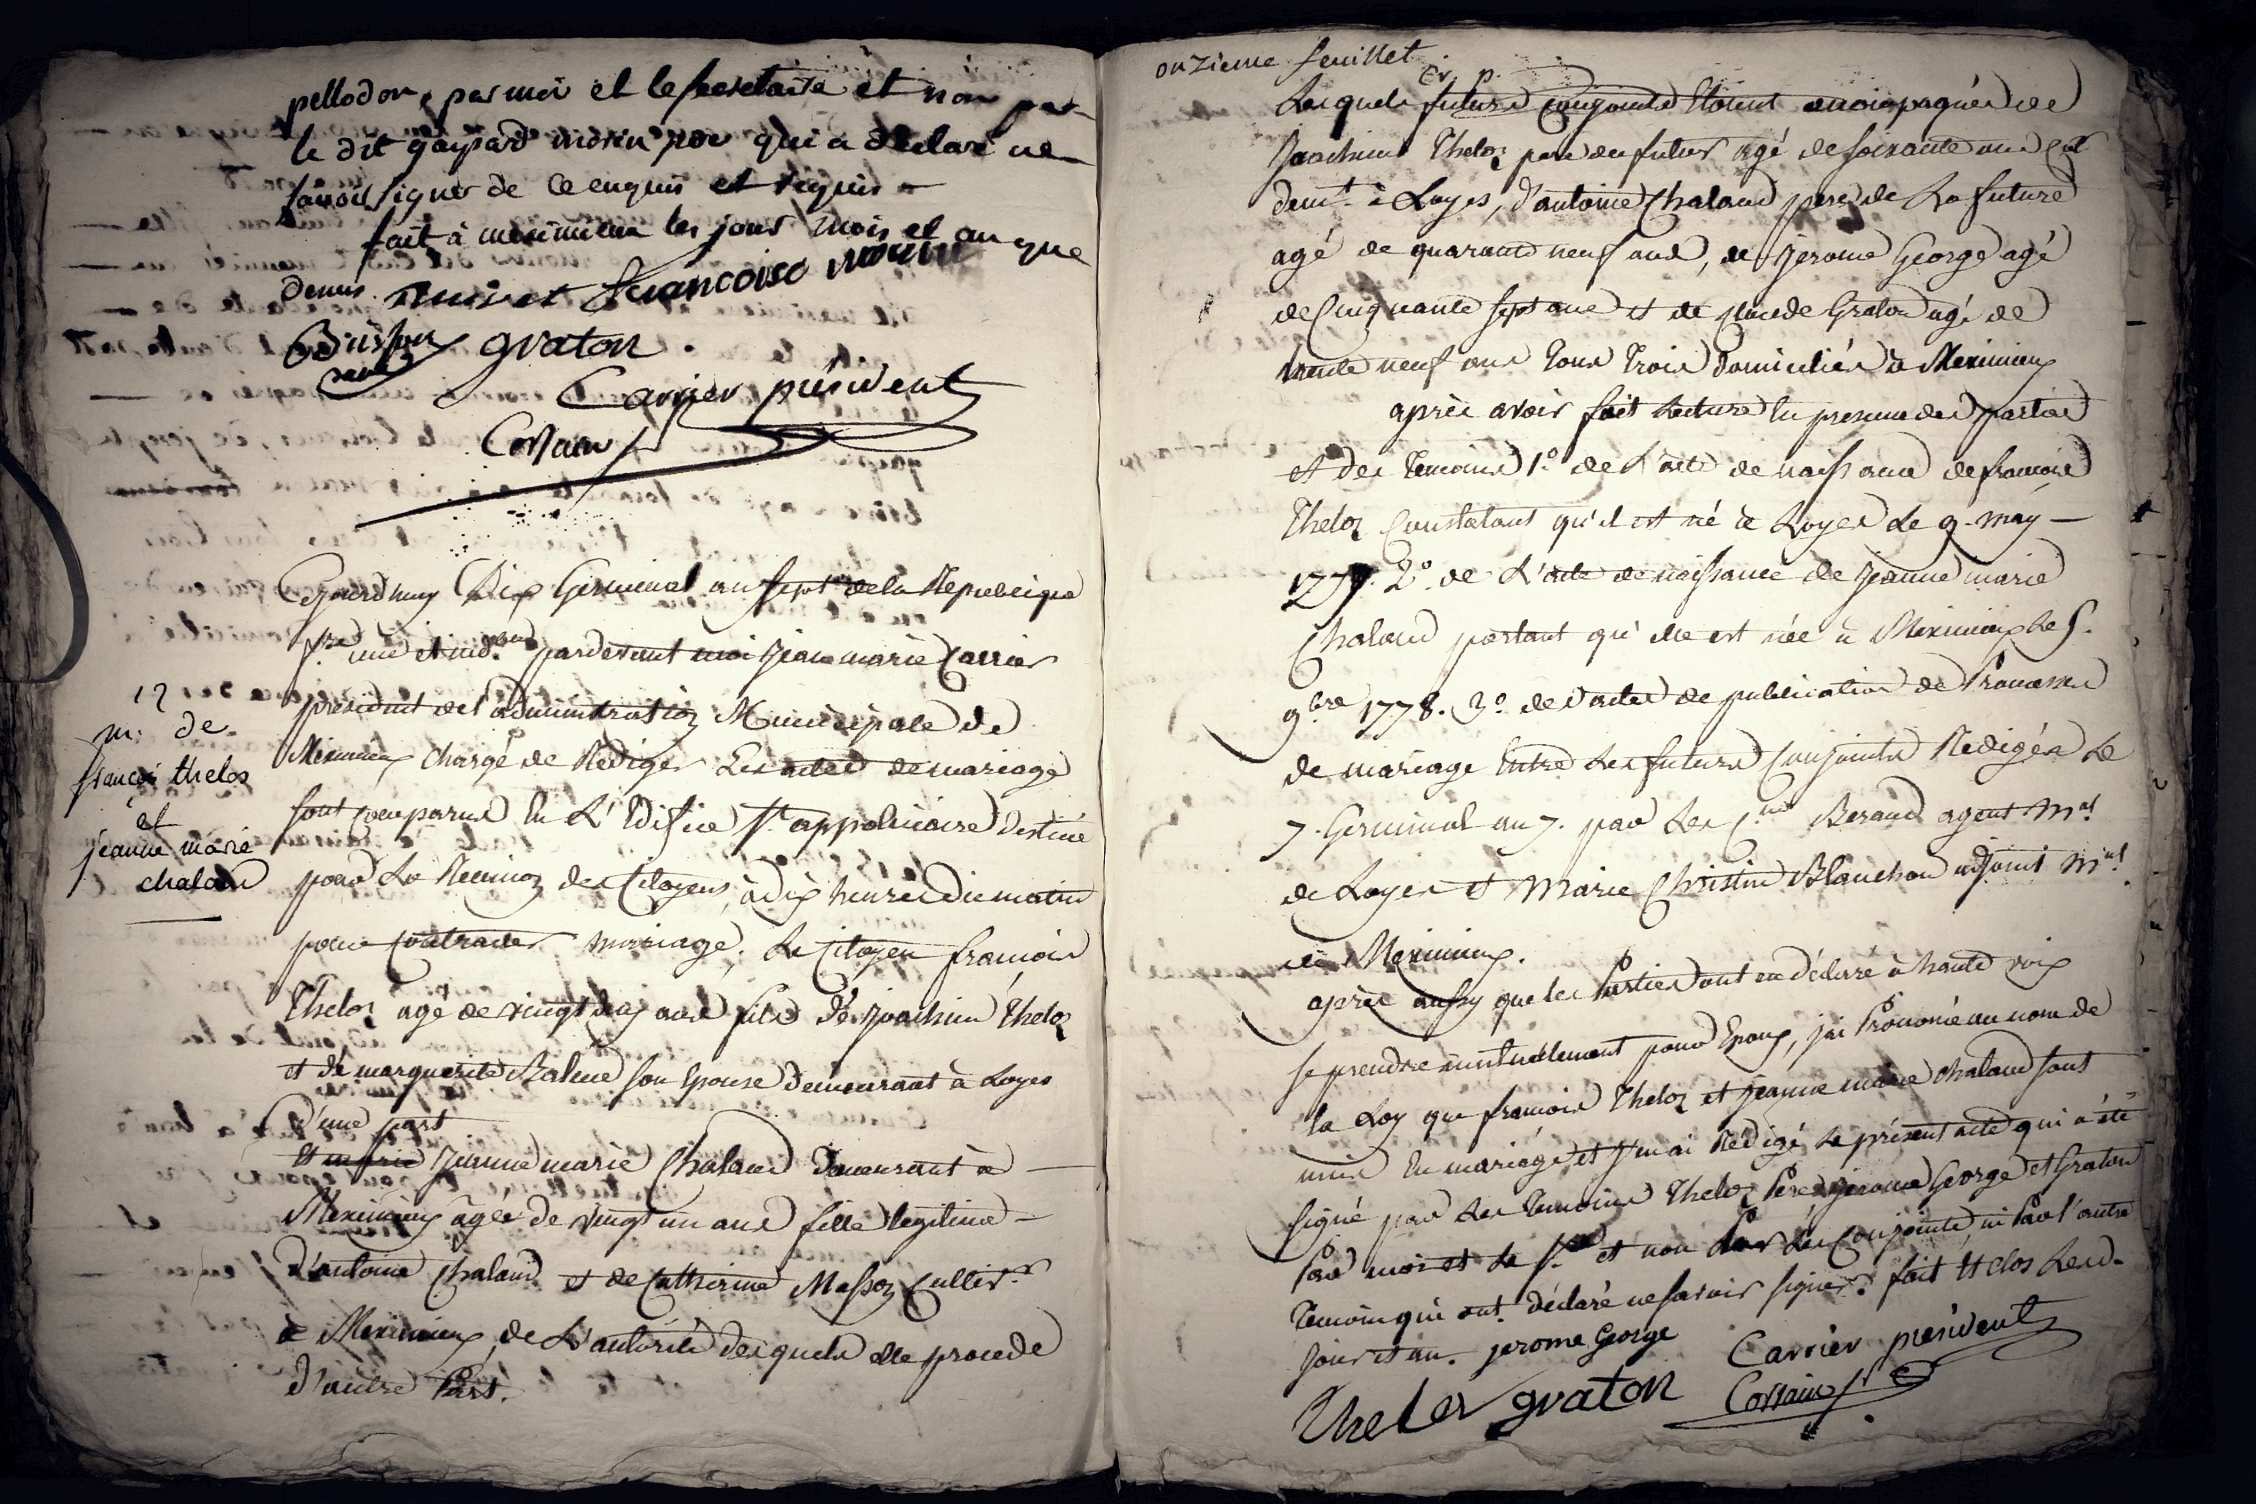 pellodon, par moi et le secretaire et non par
le dit gaspard morin pere qui a déclaré ne
savoir signer de ce enquis et requis
fait à meximieux les jour mois et an que
denus. françoise morin
Brisson graton
Carrier président
Cossain
Cejourdhuy Dix Germinal an sept de la Republique
fse une et indble pardevant moi Jean marie Carrier
president de l'administration Municipale de
Meximieux chargé de Rediger Les actes de mariage
12
m. de
françois thelos
et
jeanne marie
chaland
sont comparus En L'Edifice St appolinaire Destiné
pour La Reunion des Citoyens, à dix heures du matin
pour contracter mariage, Le Citoyen françois
Theloz agé de vingt deux ans fils de Joachim Theloz
et de marguerite Baleue son Epouse demeurant à Loyes
D'une part
Et marie Jeanne marie Chaland demeurant à
Meximieux âgée de vingt un ans fille legitime
D'antoine Chaland et de Catherine Masson Cultivrs
à Meximieux, de L'autorité desquels elle procede
d'autre Part.
onzieme feuillet
Cr. p.
Lesquels futurs Conjoints Etoient accompagnés de
Joachim Theloz pere du futur agé de soixante ans Cult
demt. à Loyes, d'antoine Chaland pere de La future
agé de quarante neuf ans, de Jerome George agé
de Cinquante sept ans et de claude Graton agé de
trente neuf ans Tous Trois Domiciliés à Meximieux
après avoir fait Lecture En presence des parties
et des Temoins 1º. de L'acte de naissance de francois
Theloz Constatant qu'il est né à Loyes Le 9. may
1777. 2º. de L'acte de naissance de Jeanne marie
Chaland portant qu'elle est née à Meximieux le 5.
9bre 1778. 3º. des actes de publication de Promesses
de mariage Entre Les futurs Conjoints Redigés Le
7. Germinal an 7. par Les Cens Beraud agent Mal
de Loyes et Marie Christin Blanchon adjoint Mal
de Meximieux.
après aussy que les Parties ont eu déclaré à haute voix
se prendre mutuelement pour Epoux, j'ai Prononcé au nom de
la Loy que françois Theloz et Jeanne marie chaland sont
unis En mariage, et j'en ai Rédigé Le présent acte qui a été
signé par Les temoins Theloz Pere Jerome George et Graton
Par moi et Le sre et non Par Les Conjoints, ni Par l'autre
temoin qui ont déclaré ne savoir signer. fait et clos Lesd.
jour et an. jerome George Carrier président
Thelos graton Cossain